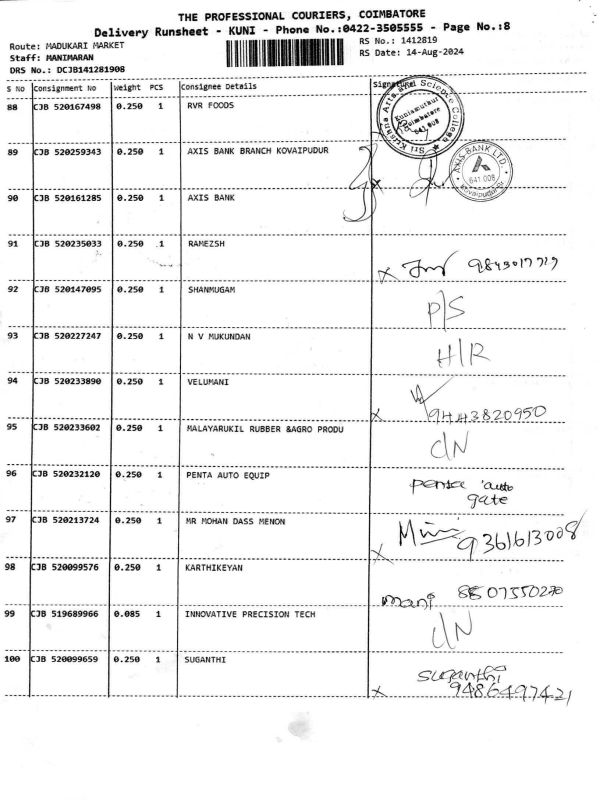 THE PROFESSIONAL COURIERS, COIMBATORE
Delivery Runsheet - KUNI - Phone No.:0422-3505555 - Page No.:8
Route: MADUKARI MARKET
RS No.: 1412819
Staff: MANIMARAN
RS Date: 14-Aug-2024
DRS No.: DCJB141281908
S No Consignment No Weight PCS Consignee Details
88 CJB 520167498 0.250 1 RVR FOODS
Sri Krishna Arts and Science College
Kuniamuthur
Coimbatore
641 008
89 CJB 520259343 0.250 1 AXIS BANK BRANCH KOVAIPUDUR
AXIS BANK LTD.
641 008
Kovaipudur
90 CJB 520161285 0.250 1 AXIS BANK
91 CJB 520235033 0.250 1 RAMEZSH
x
92 CJB 520147095 0.250 1 SHANMUGAM
P/S
93 CJB 520227247 0.250 1 N V MUKUNDAN
H/R
94 CJB 520233890 0.250 1 VELUMANI
x 9443820950
95 CJB 520233602 0.250 1 MALAYARUKIL RUBBER &AGRO PRODU
C/N
96 CJB 520232120 0.250 1 PENTA AUTO EQUIP
penta auto
gate
97 CJB 520213724 0.250 1 MR MOHAN DASS MENON
x 9361613008
98 CJB 520099576 0.250 1 KARTHIKEYAN
mani
99 CJB 519689966 0.085 1 INNOVATIVE PRECISION TECH
C/N
100 CJB 520099659 0.250 1 SUGANTHI
suganthi
x 9486497421